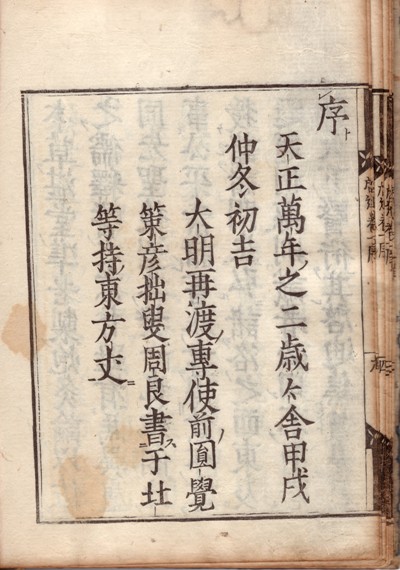 序
天正萬年之二歳々舎甲戌
仲冬初吉
大明再渡專使前圓覺
策彦拙叟周良書ス于北
等持東方丈ニ